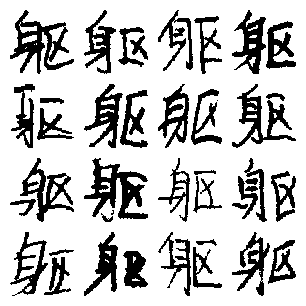 躯躯躯躯
躯躯躯躯
躯躯躯躯
躯躯躯躯